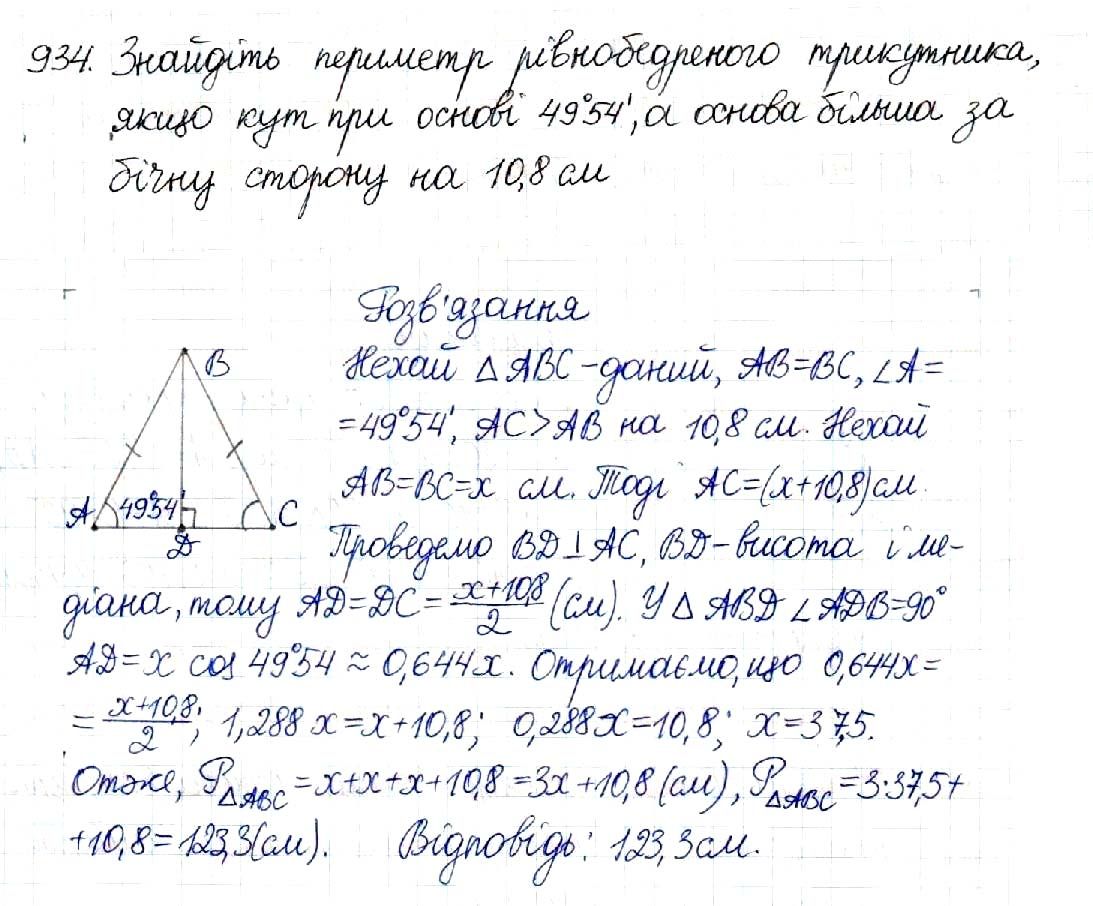 934. Знайдіть периметр рівнобедреного трикутника,
якщо кут при основі 49°54', а основа більша за
бічну сторону на 10,8 см
Розв'язання
B
Нехай △ABC – даний, AB=BC, ∠A=
=49°54', AC>AB на 10,8 см. Нехай
AB=BC=x см. Тоді AC=(x+10,8) см.
A 49°54' C
D
Проведемо BD⊥AC, BD – висота і ме-
діана, тому AD=DC=(x+10,8)/2 (см). У △ABD ∠ADB=90°
AD=x cos 49°54 ≈ 0,644x. Отримаємо, що 0,644x=
=(x+10,8)/2; 1,288x=x+10,8; 0,288x=10,8; x=37,5.
Отже, P△ABC=x+x+x+10,8=3x+10,8 (см), P△ABC=3·37,5+
+10,8=123,3(см). Відповідь: 123,3 см.